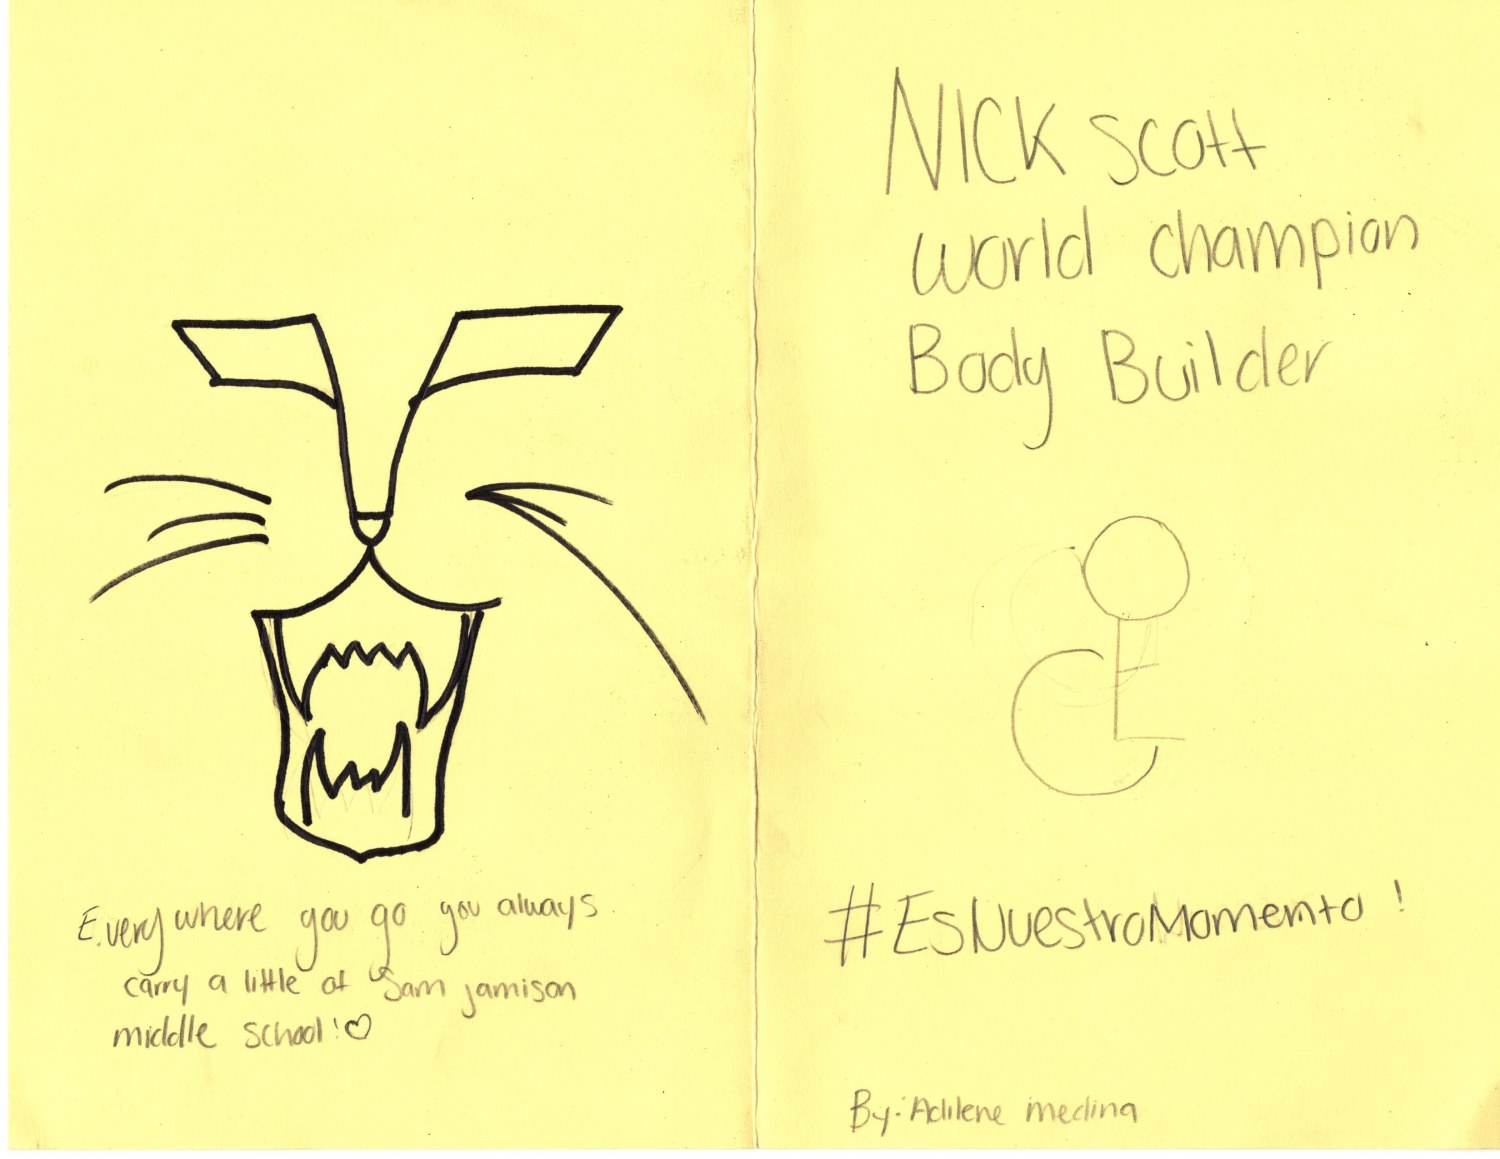 Everywhere you go you always
carry a little of Sam jamison
middle school!♡
NICK Scott
world champion
Body Builder
#EsNuestroMomento!
By: Adilene medina